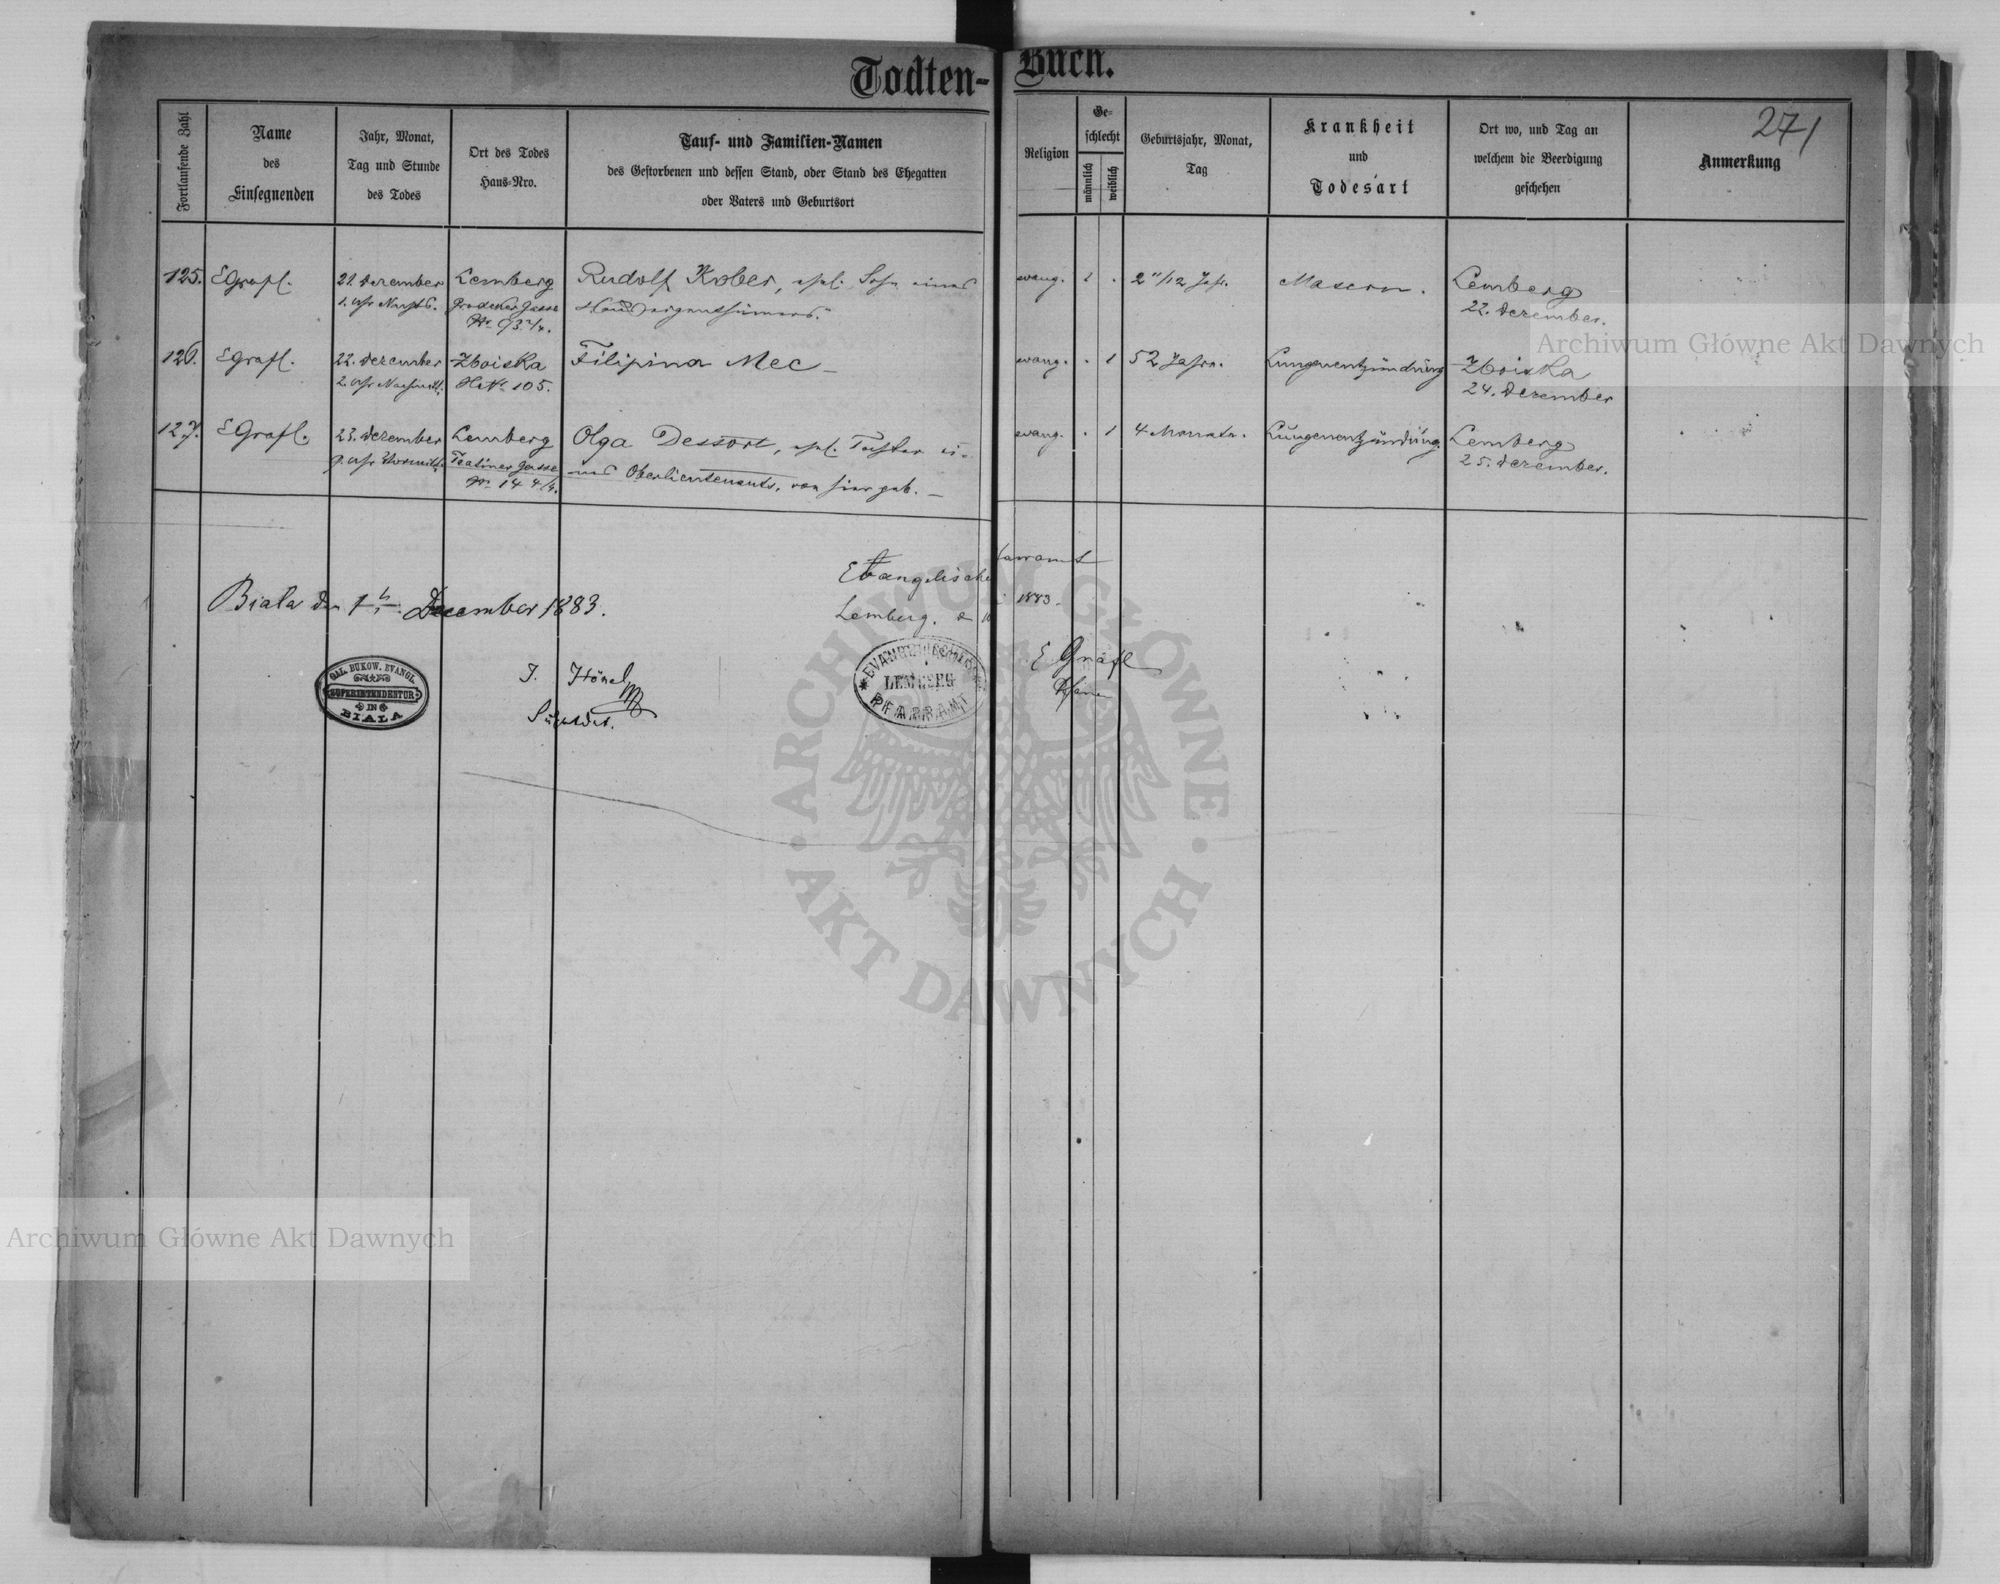 Todten-Buch.
271
Fortlaufende Zahl
Name
des
Einsegnenden
Jahr, Monat,
Tag und Stunde
des Todes
Ort des Todes
Haus-Nro.
Tauf- und Familien-Namen
des Gestorbenen und dessen Stand, oder Stand des Ehegatten
oder Vaters und Geburtsort
Religion
Ge-
schlecht
männlich
weiblich
Geburtsjahr, Monat,
Tag
Krankheit
und
Todesart
Ort wo, und Tag an
welchem die Beerdigung
geschehen
Anmerkung
125.
EGrafl.
21. Dezember
1. Uhr Nachts.
Lemberg
Grodeker Gasse
Rudolf Kober, ehel. Sohn eines
Hauseigenthümers.
evang.
1
.
2 11/12 Jah.
Masern.
Lemberg
22. Dezember.
126.
EGrafl.
22. Dezember
2. Uhr Nachmitt.
Zboiska
HN. 105.
Filipina Mec –
evang.
.
1
52 Jahre.
Lungenentzündung
Zboiska
24. Dezember
127.
EGrafl.
23. Dezember
Uhr Vormitt.
Lemberg
Teatiner Gasse
Nr. 14 4/4.
Olga Dessort, ehel. Tochter ei-
nes Oberlieutenants, von hier geb. –
evang.
.
1
4 Monate.
Lungenentzündung.
Lemberg
25. Dezember.
Evangelisches
Lemberg.
1883
Biala den
December 1883.
GAL. BUKOW. EVANGL.
SUPERINTENDENTUR
IN
BIALA
J. Hönel
EVANGELISCHES
LEMBERG
PFARRAMT
E Grafl
ARCHIWUM GŁÓWNE
AKT DAWNYCH
Archiwum Główne Akt Dawnych
Archiwum Główne Akt Dawnych